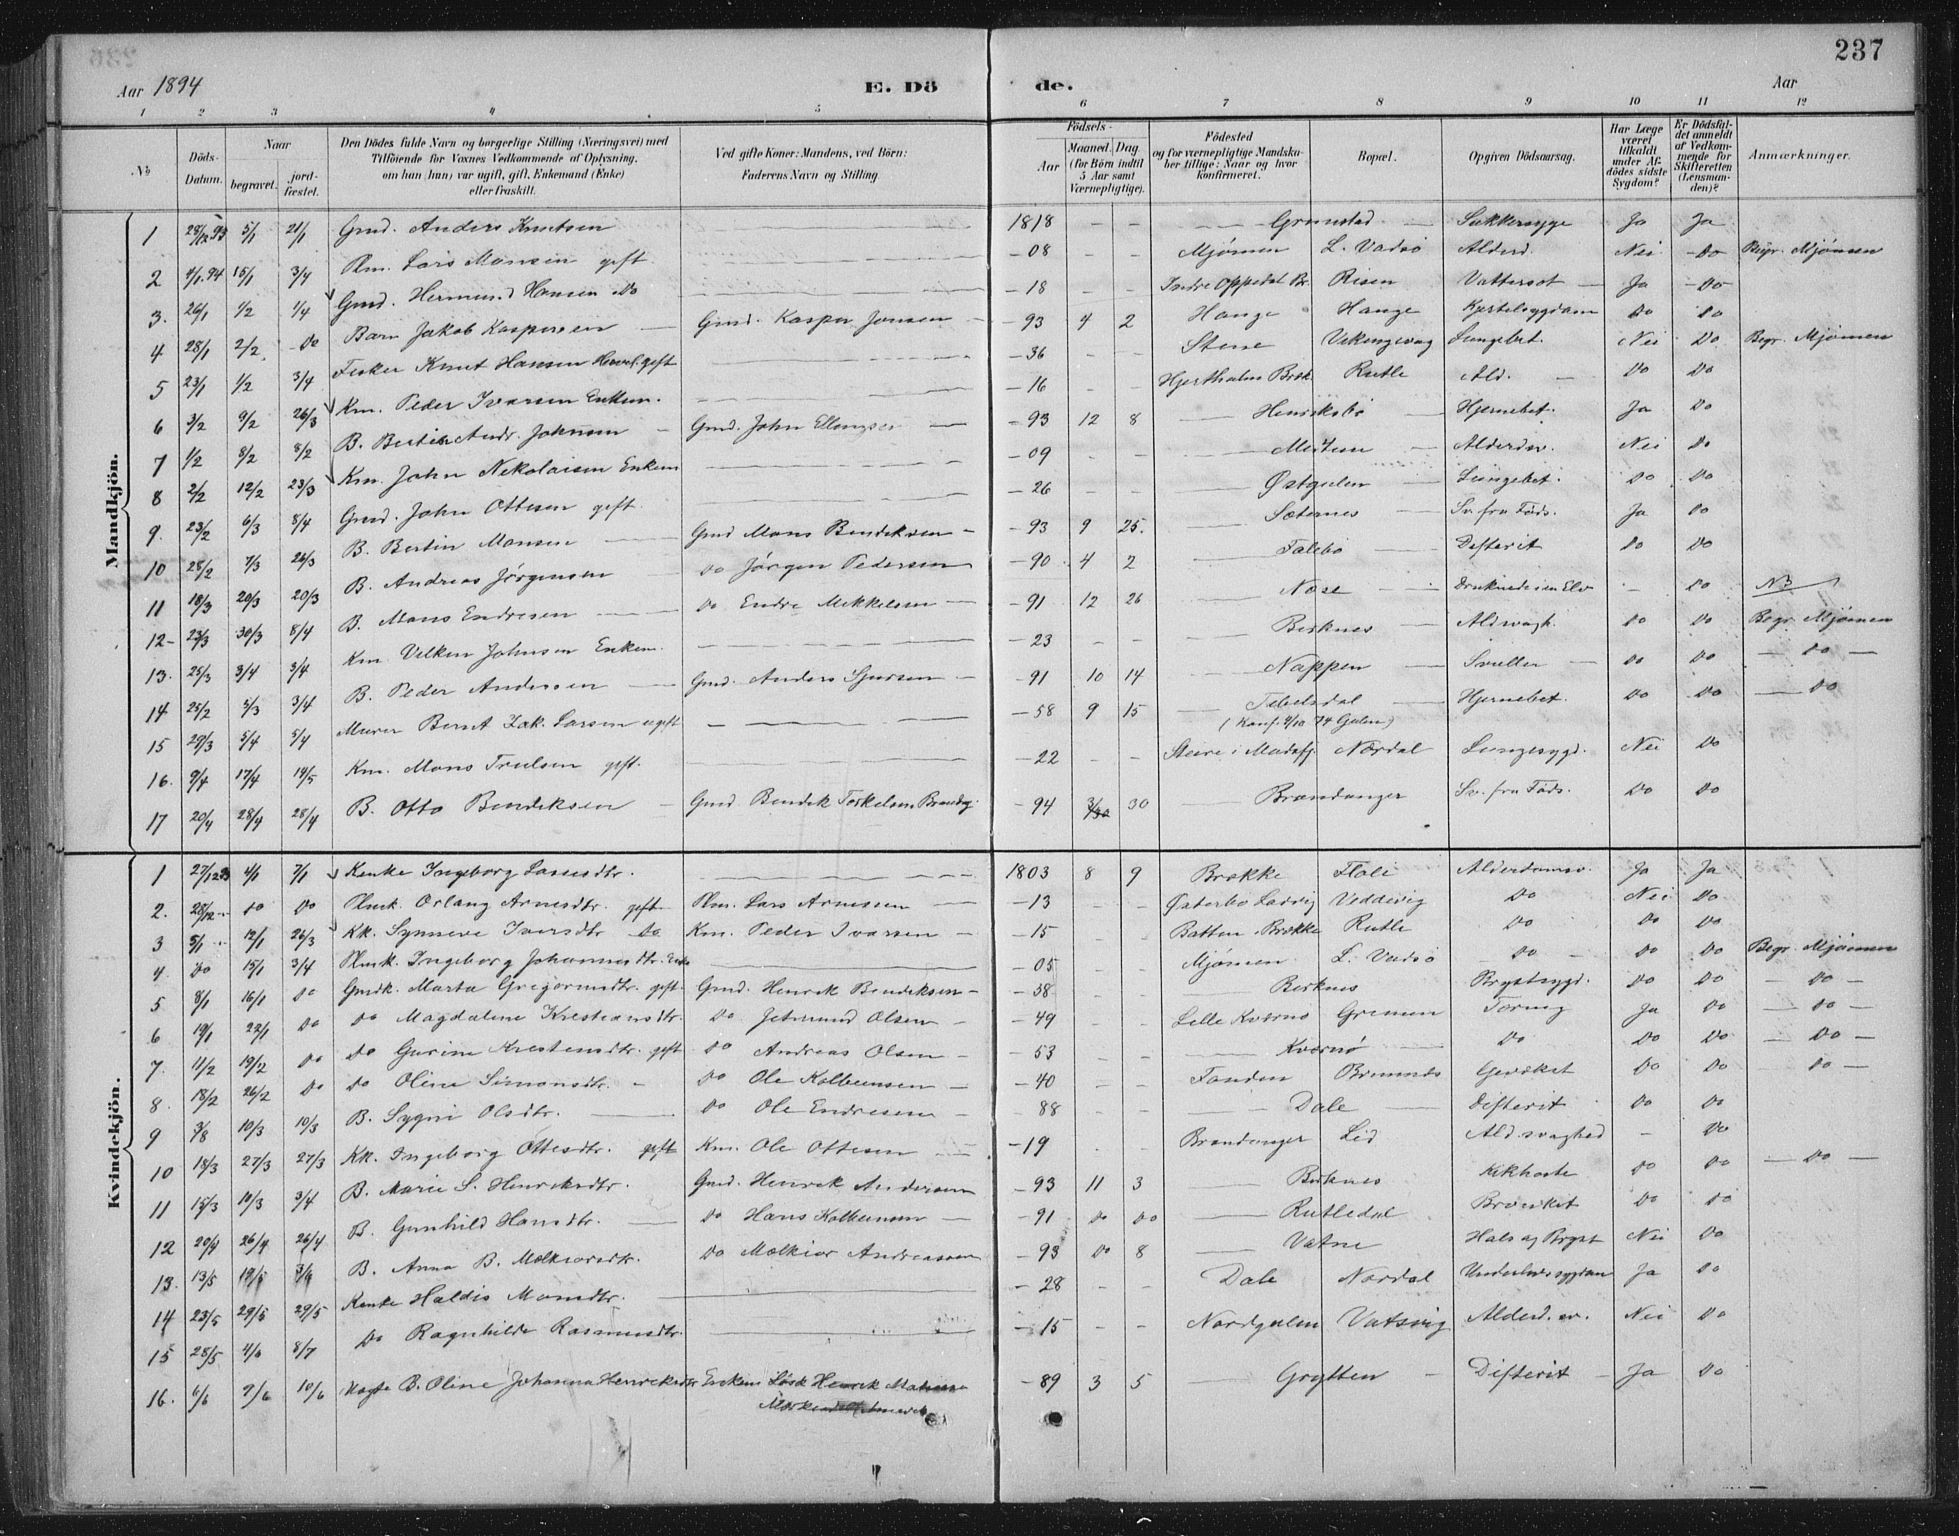 237
Aar 1894
E. Döde.
Aar
1 2 3 4 5 6 7 8 9 10 11 12
No
Döds-Datum.
Naar
begravet.
jord-fæstet.
Den Dödes fulde Navn og borgerlige Stilling (Næringsvei) med Tilföiende for Voxnes Vedkommende af Oplysning, om han (hun) var ugift, gift, Enkemand (Enke) eller fraskilt.
Ved gifte Koner: Mandens, ved Börn: Faderens Navn og Stilling
Födsels-
Aar
Maaned. Dag
(for Börn indtil 5 Aar samt Værnepligtige).
Födested og for værnepligtige Mandskaber tillige: Naar og hvor konfirmeret.
Bopæl.
Opgiven Dödsaarsag.
Har Læge været tilkaldt under Afdödes sidste Sygdom?
Er Dödsfaldet anmeldt af Vedkommende for Skifteretten (Lensmanden)?
Anmærkninger.
Mandkjön.
1 28/12 93 5/1 21/1 Gmd. Anders Knutsen 1818 Grimstad Sukkersyge Ja Ja
2 4/1 94 15/1 3/4 Plm. Lars Monsen gift -08 Mjömen L. Vadsö Alderd. Nei Do Begr. Mjömen
3. 26/1 1/2 4/4 Gmd. Hermund Hansen Do -18 Indre Oppedal Br. Risen Vattersot Ja Do
4 28/1 2/2 Do Barn Jakob Kaspersen Gmd. Kasper Jonsen -93 4 2 Hauge Hauge Kjertelsygdom Do Do
5 23/1 1/2 3/4 Fisker Knut Hansen gift -36 Stene Vikingevaag Lungebet. Nei Do Begr. Mjömen
6 3/2 9/2 26/3 Km. Peder Iversen Enkem. -16 Rutle Ald. Do Do
7 1/2 8/2 8/2 B. Bertin Andr. Johnsen Gmd. John Ellingsen -93 12 8 Henriksbö Hjernebet. Ja Do
8 2/2 12/2 23/3 Km. John Nikolaisen Enkem -09 Alderdsv. Nei Do
9. 23/2 6/3 8/4 Gmd. John Ottesen gift. -26 Østgulen Lungebet. Do Do
10 28/2 7/3 26/3 B. Bertin Monsen Gmd Mons Bendiksen -93 9 25. Sæternes Sv. fra Föds. Ja Do
11 18/3 20/3 20/3 B. Andreas Jörgensen Do Jörgen Pedersen -90 4 2 Falebö Difterit Do Do
12 23/3 30/3 8/4 B. Mons Endresen Do Endre Mikkelsen -91 12 26 Nose Druknede i en Elv Do NB
13. 25/3 3/4 3/4 Km. Johnsen Enkem. -23 Birknes Aldsvagh. Do Do Begr. Mjömen
14 25/2 5/3 3/4 B. Peder Andersen Gmd. Anders Sjursen -91 10 14 Nappen Do Do Do
15 29/3 5/4 5/4 Murer Bernt Jak. Larsen ugift -58 9 15 (Konf. 4/10 74 Gulen) Hjernebet. Do Do Do
16. 9/4 17/4 14/5 Km. Mons Trulsen gift. -22 Nordal Lungesygd. Nei Do
17 20/4 28/4 28/4 B. Otto Bendiksen Gmd Bendik Torkelsen Brandg. -94 3/30 30 Brandanger Sv. fra Föds. Do Do
Kvindekjön.
1 27/12 93 4/1 7/1 Kenke Ingeborg Lassesdtr. 1803 8 9 Brække Flole Alderdomssv. Ja Ja
2. 28/12 Do Do Plmk. Arnesdtr. gift Plm. Lars Arnesen -13 Østerbö Ladvig Veddevig Do Nei Do
3 5/1 12/1 26/3 Kk. Synneve Iversdtr Do Km. Peder Ivarsen -15 Batten Brække Rutle Do Do Do
4. Do 15/1 3/4 Plmk. Ingeborg Johannesdtr. Enke -05 Mjömen L. Vadsö Do Do Do Begr. Mjömen
5 8/1 16/1 Do Gmdk. Marta Gregoriusdtr. gift. Gmd. Henrik Bendiksen -38 Birknes Brystsygd. Do Do Do
6 19/1 22/1 Do Do Magdalene Kristiansdtr. Do Jetmund Olsen -49 Lille Kværnö Grinen Tæring Ja Do Do
7. 11/2 19/2 Do Do Gurine Kristensdtr. gift Do Andreas Olsen -53 Kværnö Do Do Do Do
8. 18/2 26/2 Do Do Oline Simonsdtr. Do Ole Kolbeinsen -40 Fonden Brimnes Do Do Do
9 3/8 10/3 10/3 B. Sygni Olsdtr. Do Ole Endresen -88 Dale Difterit Do Do
10 18/3 27/3 27/3 Kk. Ingeborg Ottesdtr. gift Km. Ole Ottesen -19 Brandanger Lid Ald.svaghed Do
11 15/3 10/3 3/4 B. Marie S. Henriksdtr. Gmd. Henrik Andersen -93 11 3 Birknes Kikhoste Do Do Do
12 20/4 26/4 26/4 B. Gunhild Hansdtr. Do Hans Kolbeinsen -91 Do Do Rutledal Do Do
13. 13/5 19/5 B. Anna B. Melkiorsdtr. Do Melkior Andreassen -93 Do 8 Vatne Hals og Bryst Nei Do
14 23/5 29/5 29/5 Kenke Haldis Monsdtr. -28 Dale Nordal Underlivssygdom Ja Do
15 28/5 4/6 8/7 Do Ragnhilde Rasmusdtr. -15 Nordgulen Vatsvig Alderd.sv. Nei Do
16. 6/6 7/6 10/6 B. Oline Johanna Henriksdtr Henrik -89 3 5 Grytten Difterit Ja Do